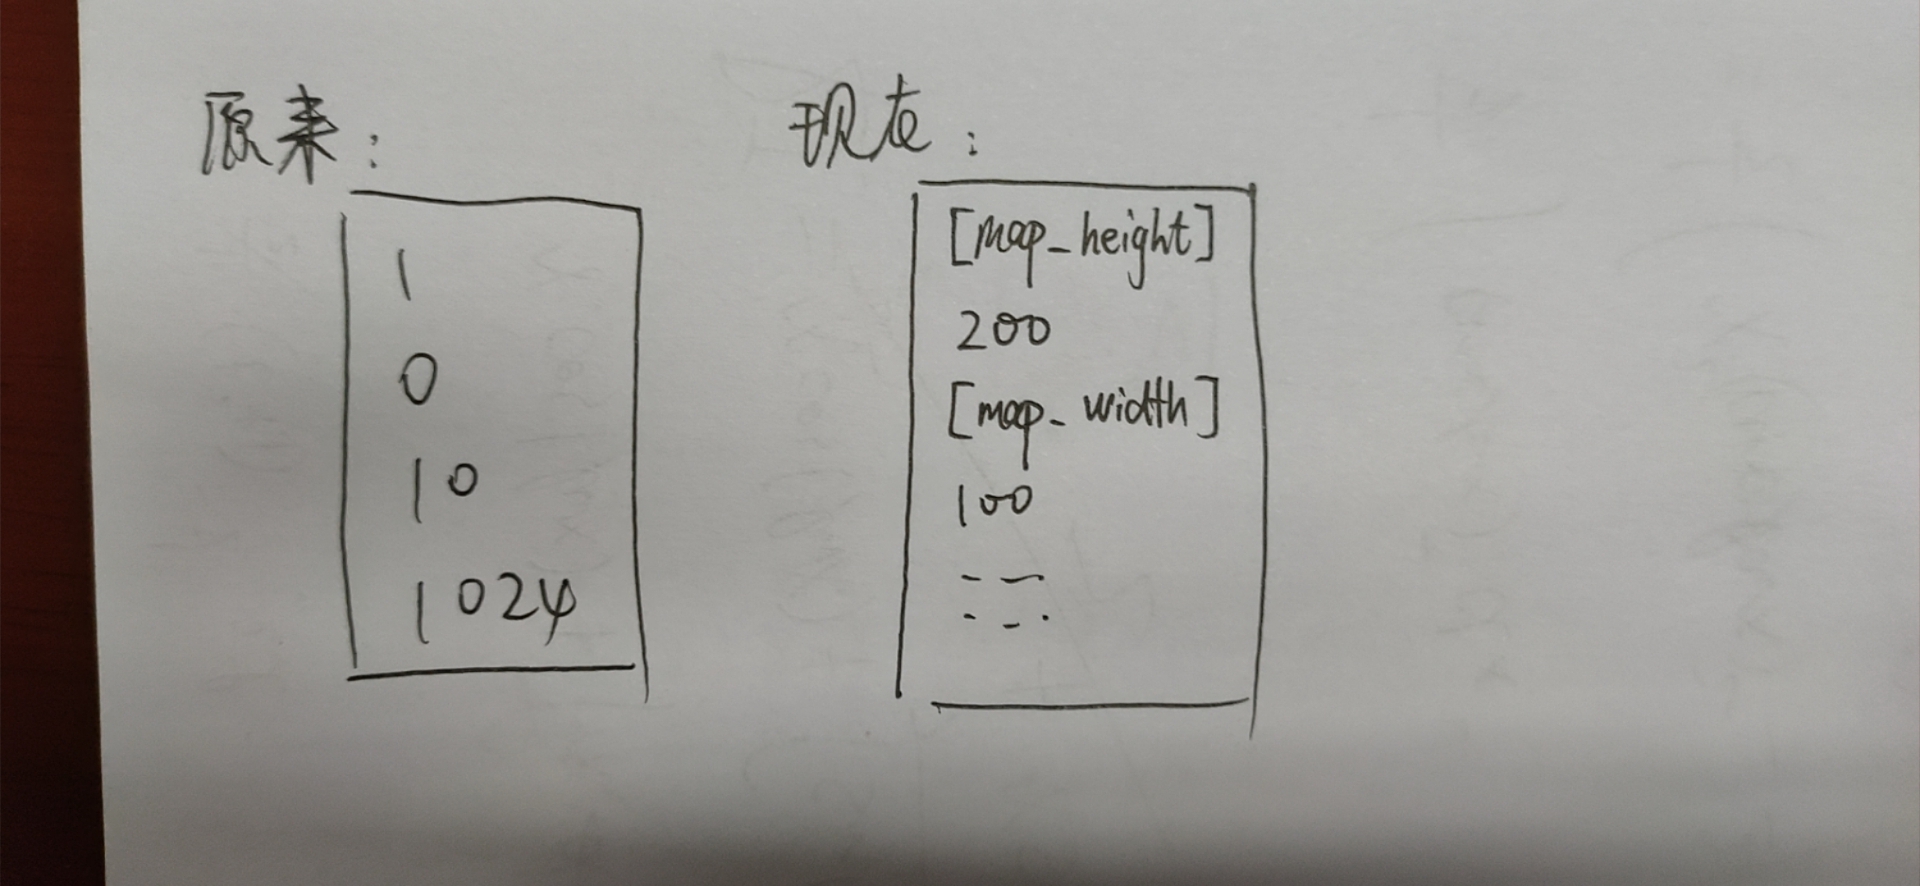 原来：
1
0
10
1024
现在：
[map_height]
200
[map_width]
100